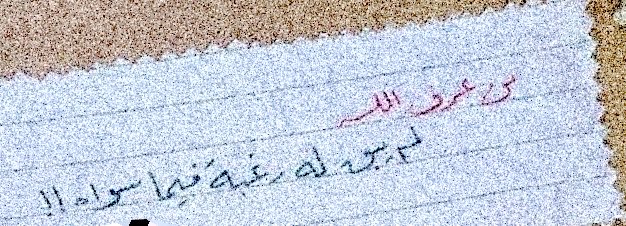 من عرف الله
لم يبق له رغبة فيما سواه !!